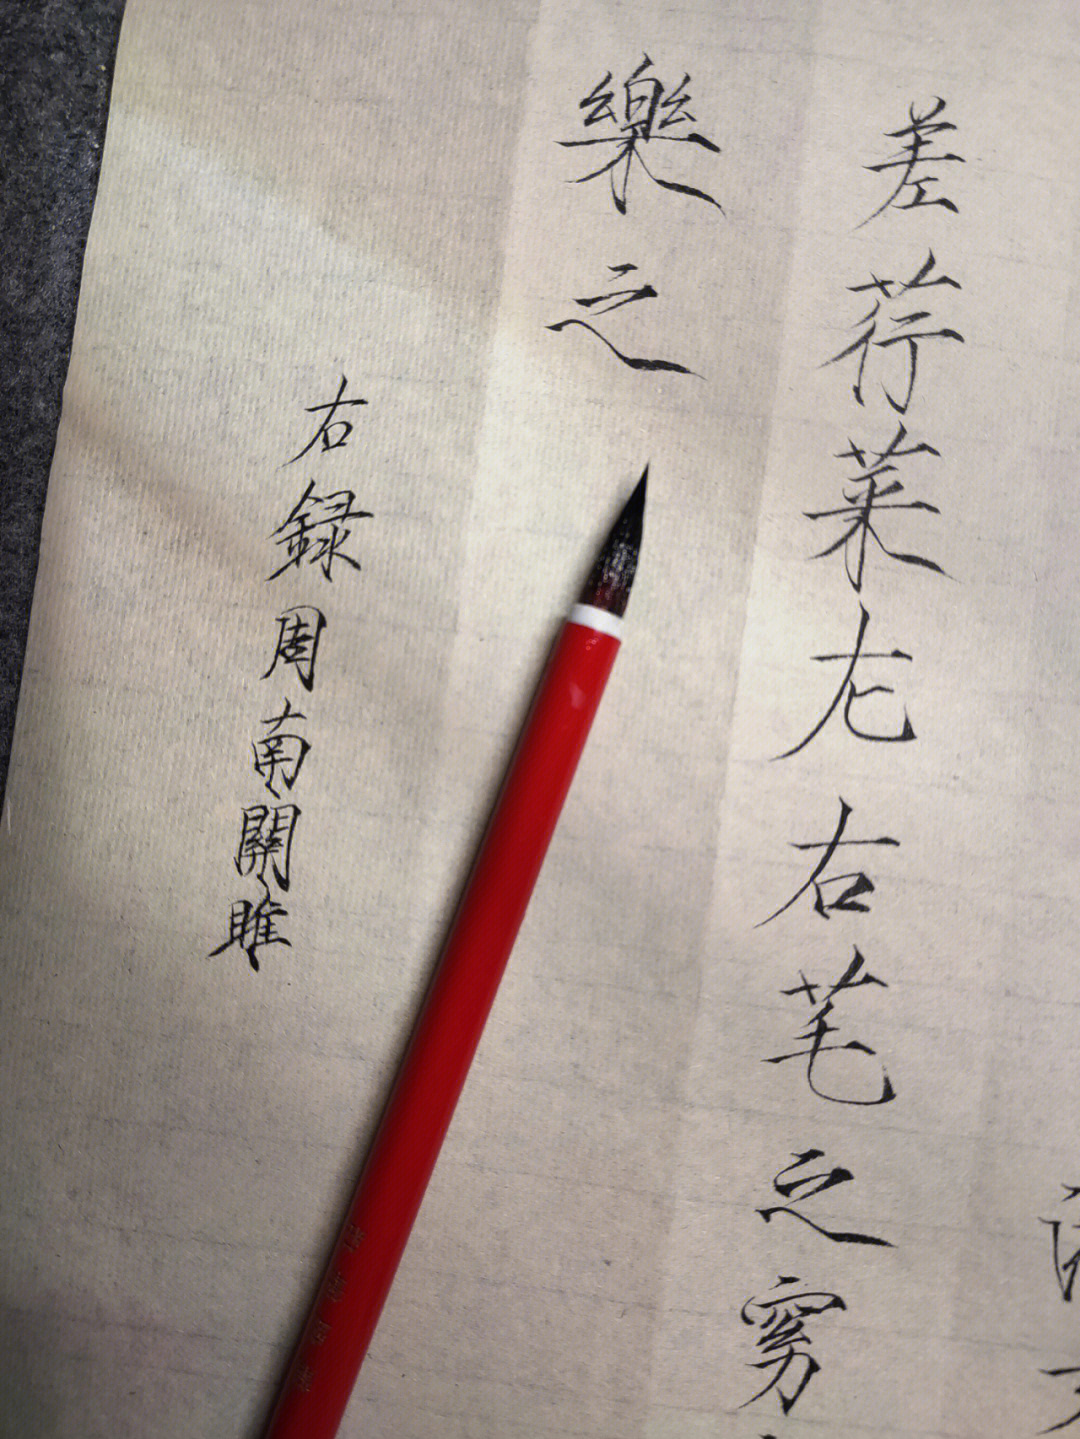 差荇菜左右芼之窈
樂之
右録周南關雎